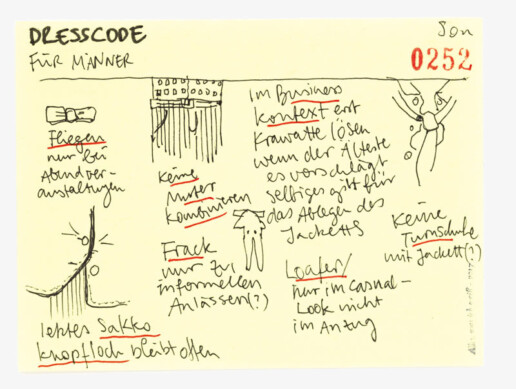 DRESSCODE
FÜR MÄNNER
Son
0252
Fliegen
nur bei
Abendver-
anstaltungen
keine
Muster
kombinieren
im Business
kontext erst
Krawatte lösen
wenn der Älteste
es vorschlägt
selbiges gilt für
das Ablegen des
Jacketts
Keine
Turnschuhe
mit Jackett(?)
Frack
nur zu
informellen
Anlässen(?)
Loafer/
nur im Casual-
Look nicht
im Anzug
letztes Sakko
knopfloch bleibt offen